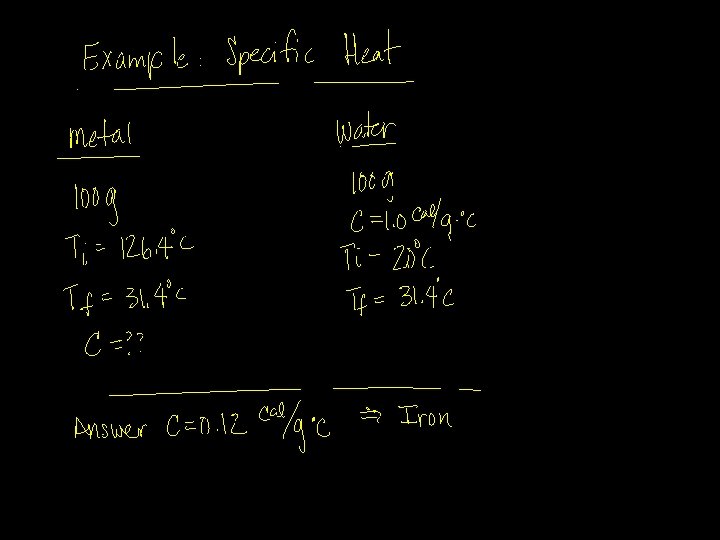 Example: Specific Heat
metal
100g
Ti = 126.4°C
Tf = 31.4°C
C = ??
Water
100g
C = 1.0 cal/g·°C
Ti = 20°C
Tf = 31.4°C
Answer C = 0.12 cal/g°C ⇒ Iron